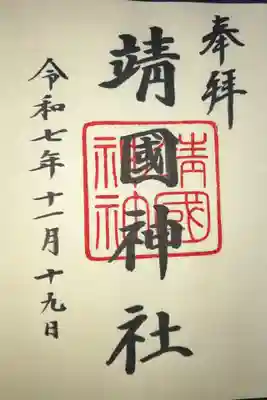 奉拝
靖國神社
靖國
神社
令和七年十一月十九日